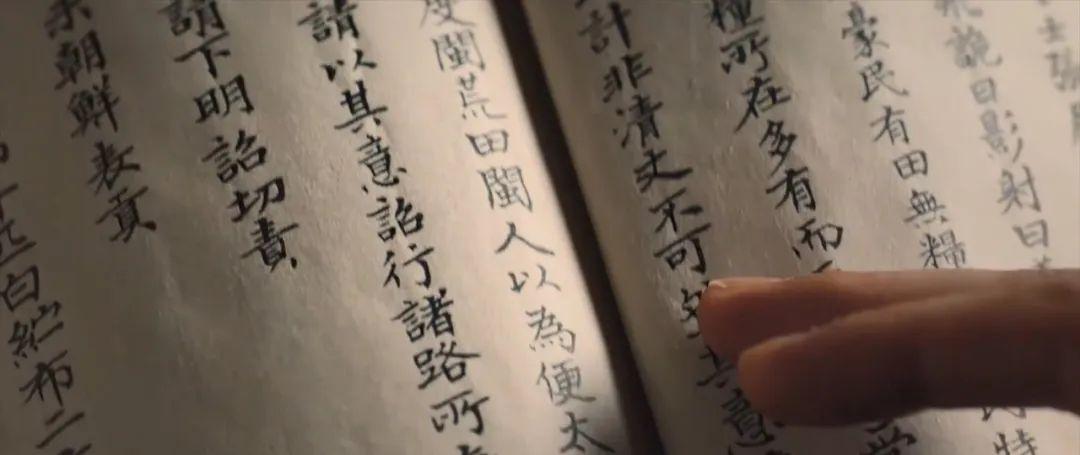 士張
說曰影射曰
豪民有田無糧民特
糧所在多有而
計非清丈不可其意
度閩荒田閩人以為便太
請以其意詔行諸路所
請下明詔切責
朝鮮表貢
匹白紵布二